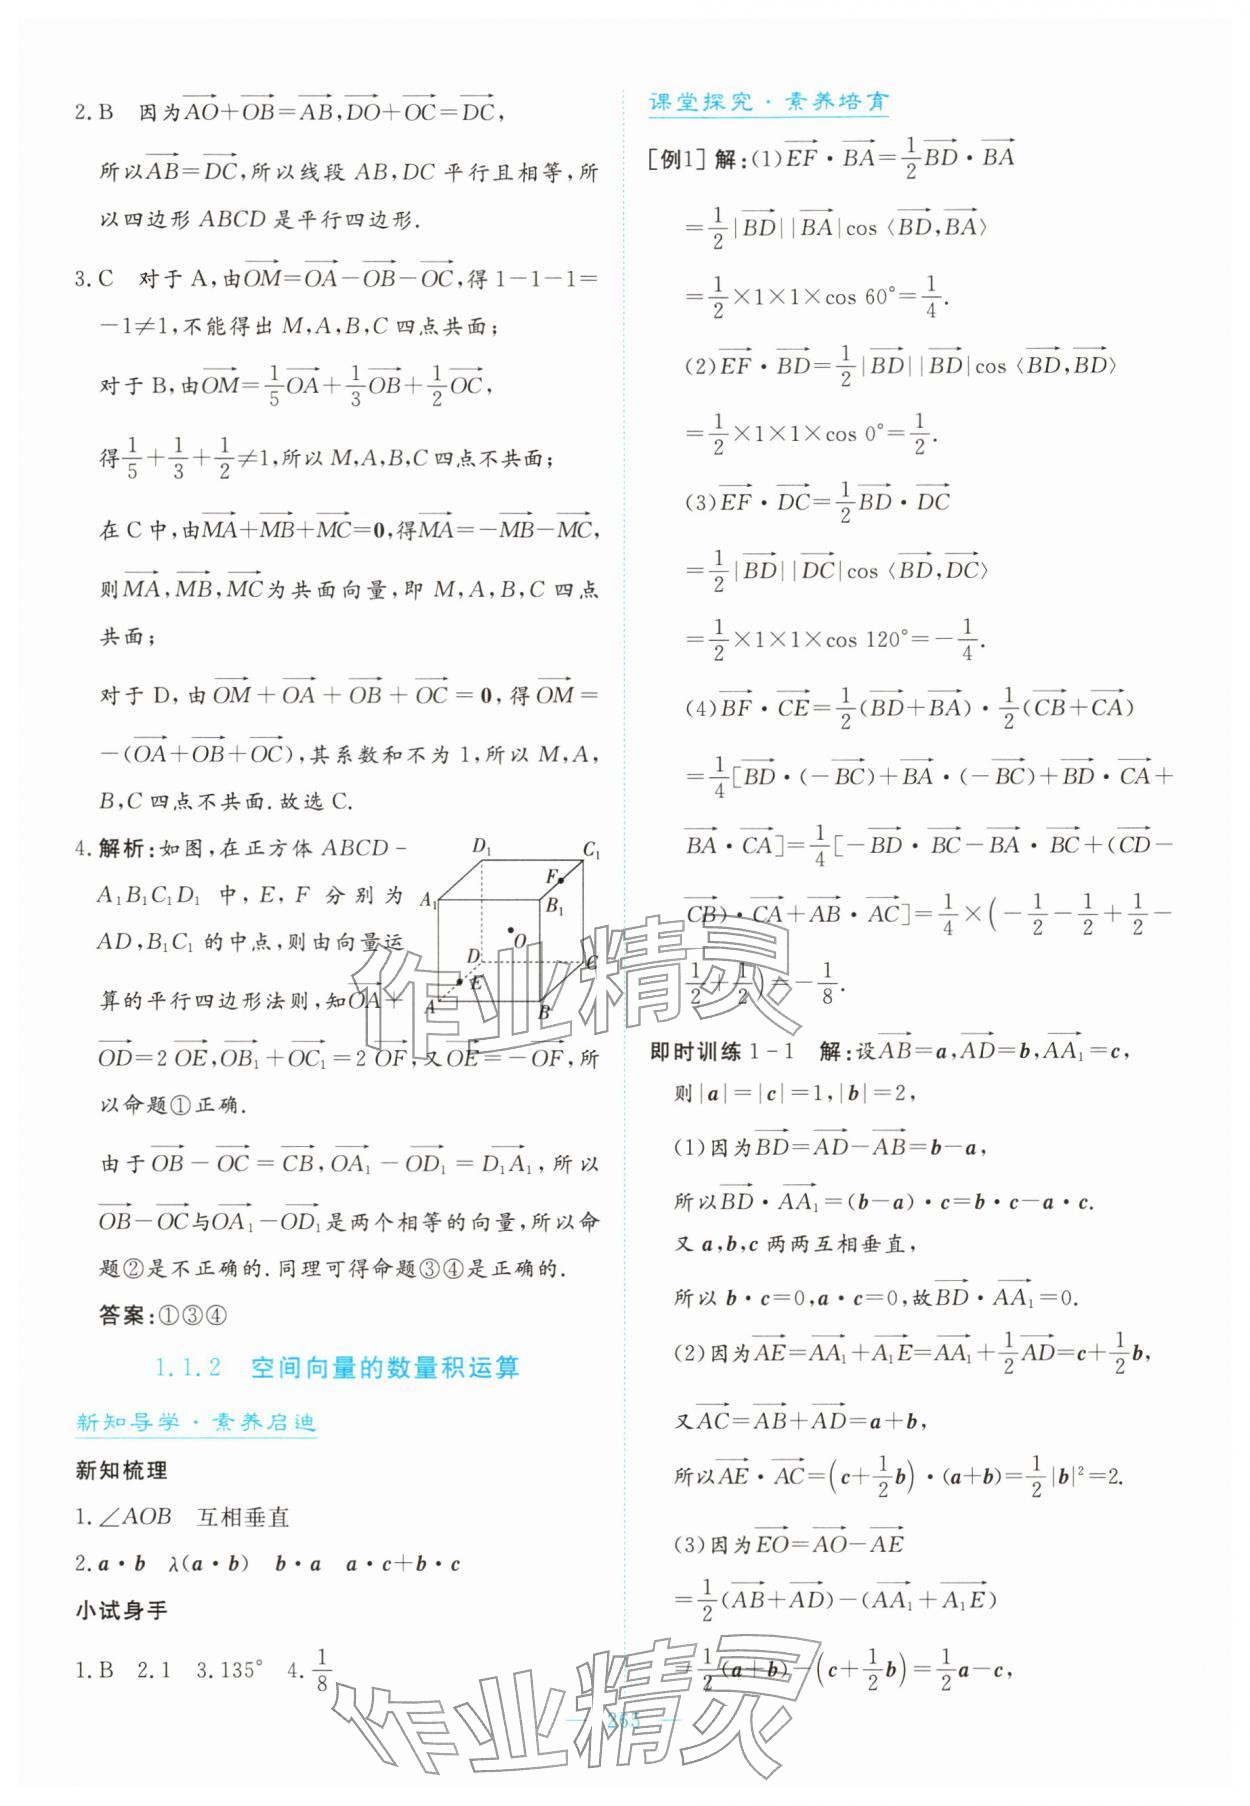 2.B 因为$\overrightarrow{AO}+\overrightarrow{OB}=\overrightarrow{AB},\overrightarrow{DO}+\overrightarrow{OC}=\overrightarrow{DC}$,
所以$\overrightarrow{AB}=\overrightarrow{DC}$,所以线段 AB,DC 平行且相等,所
以四边形 ABCD 是平行四边形.
3.C 对于 A,由$\overrightarrow{OM}=\overrightarrow{OA}-\overrightarrow{OB}-\overrightarrow{OC}$,得 1-1-1=
-1≠1,不能得出 M,A,B,C 四点共面;
对于 B,由$\overrightarrow{OM}=\frac{1}{5}\overrightarrow{OA}+\frac{1}{3}\overrightarrow{OB}+\frac{1}{2}\overrightarrow{OC}$,
得$\frac{1}{5}+\frac{1}{3}+\frac{1}{2}$≠1,所以 M,A,B,C 四点不共面;
在 C 中,由$\overrightarrow{MA}+\overrightarrow{MB}+\overrightarrow{MC}=\mathbf{0}$,得$\overrightarrow{MA}=-\overrightarrow{MB}-\overrightarrow{MC}$,
则$\overrightarrow{MA},\overrightarrow{MB},\overrightarrow{MC}$为共面向量,即 M,A,B,C 四点
共面;
对于 D,由$\overrightarrow{OM}+\overrightarrow{OA}+\overrightarrow{OB}+\overrightarrow{OC}=\mathbf{0}$,得$\overrightarrow{OM}=$
$-(\overrightarrow{OA}+\overrightarrow{OB}+\overrightarrow{OC})$,其系数和不为 1,所以 M,A,
B,C 四点不共面.故选 C.
4.解析:如图,在正方体 ABCD-
A₁B₁C₁D₁ 中,E,F 分别为
AD,B₁C₁ 的中点,则由向量运
算的平行四边形法则,知$\overrightarrow{OA}+$
D₁
C₁
F
A₁
B₁
O
D
C
E
A
B
$\overrightarrow{OD}=2\overrightarrow{OE},\overrightarrow{OB_1}+\overrightarrow{OC_1}=2\overrightarrow{OF}$,又$\overrightarrow{OE}=-\overrightarrow{OF}$,所
以命题①正确.
由于$\overrightarrow{OB}-\overrightarrow{OC}=\overrightarrow{CB},\overrightarrow{OA_1}-\overrightarrow{OD_1}=\overrightarrow{D_1A_1}$,所以
$\overrightarrow{OB}-\overrightarrow{OC}$与$\overrightarrow{OA_1}-\overrightarrow{OD_1}$是两个相等的向量,所以命
题②是不正确的.同理可得命题③④是正确的.
答案:①③④
1.1.2 空间向量的数量积运算
新知导学·素养启迪
新知梳理
1.∠AOB 互相垂直
2.a·b λ(a·b) b·a a·c+b·c
小试身手
1.B 2.1 3.135° 4.$\frac{1}{8}$
课堂探究·素养培育
[例1] 解:(1)$\overrightarrow{EF}\cdot\overrightarrow{BA}=\frac{1}{2}\overrightarrow{BD}\cdot\overrightarrow{BA}$
$=\frac{1}{2}|\overrightarrow{BD}||\overrightarrow{BA}|\cos\langle\overrightarrow{BD},\overrightarrow{BA}\rangle$
$=\frac{1}{2}\times1\times1\times\cos 60°=\frac{1}{4}$.
(2)$\overrightarrow{EF}\cdot\overrightarrow{BD}=\frac{1}{2}|\overrightarrow{BD}||\overrightarrow{BD}|\cos\langle\overrightarrow{BD},\overrightarrow{BD}\rangle$
$=\frac{1}{2}\times1\times1\times\cos 0°=\frac{1}{2}$.
(3)$\overrightarrow{EF}\cdot\overrightarrow{DC}=\frac{1}{2}\overrightarrow{BD}\cdot\overrightarrow{DC}$
$=\frac{1}{2}|\overrightarrow{BD}||\overrightarrow{DC}|\cos\langle\overrightarrow{BD},\overrightarrow{DC}\rangle$
$=\frac{1}{2}\times1\times1\times\cos 120°=-\frac{1}{4}$.
(4)$\overrightarrow{BF}\cdot\overrightarrow{CE}=\frac{1}{2}(\overrightarrow{BD}+\overrightarrow{BA})\cdot\frac{1}{2}(\overrightarrow{CB}+\overrightarrow{CA})$
$=\frac{1}{4}[\overrightarrow{BD}\cdot(-\overrightarrow{BC})+\overrightarrow{BA}\cdot(-\overrightarrow{BC})+\overrightarrow{BD}\cdot\overrightarrow{CA}+$
$\overrightarrow{BA}\cdot\overrightarrow{CA}]=\frac{1}{4}[-\overrightarrow{BD}\cdot\overrightarrow{BC}-\overrightarrow{BA}\cdot\overrightarrow{BC}+(\overrightarrow{CD}-$
$\overrightarrow{CB})\cdot\overrightarrow{CA}+\overrightarrow{AB}\cdot\overrightarrow{AC}]=\frac{1}{4}\times(-\frac{1}{2}-\frac{1}{2}+\frac{1}{2}-$
$\frac{1}{2}+\frac{1}{2})=-\frac{1}{8}$.
即时训练 1-1 解:设$\overrightarrow{AB}=a,\overrightarrow{AD}=b,\overrightarrow{AA_1}=c$,
则|a|=|c|=1,|b|=2,
(1)因为$\overrightarrow{BD}=\overrightarrow{AD}-\overrightarrow{AB}=b-a$,
所以$\overrightarrow{BD}\cdot\overrightarrow{AA_1}=(b-a)\cdot c=b\cdot c-a\cdot c$.
又 a,b,c 两两互相垂直,
所以 b·c=0,a·c=0,故$\overrightarrow{BD}\cdot\overrightarrow{AA_1}=0$.
(2)因为$\overrightarrow{AE}=\overrightarrow{AA_1}+\overrightarrow{A_1E}=\overrightarrow{AA_1}+\frac{1}{2}\overrightarrow{AD}=c+\frac{1}{2}b$,
又$\overrightarrow{AC}=\overrightarrow{AB}+\overrightarrow{AD}=a+b$,
所以$\overrightarrow{AE}\cdot\overrightarrow{AC}=(c+\frac{1}{2}b)\cdot(a+b)=\frac{1}{2}|b|^2=2$.
(3)因为$\overrightarrow{EO}=\overrightarrow{AO}-\overrightarrow{AE}$
$=\frac{1}{2}(\overrightarrow{AB}+\overrightarrow{AD})-(\overrightarrow{AA_1}+\overrightarrow{A_1E})$
$=\frac{1}{2}(a+b)-(c+\frac{1}{2}b)=\frac{1}{2}a-c$,
— 265 —
作业精灵
作业精灵